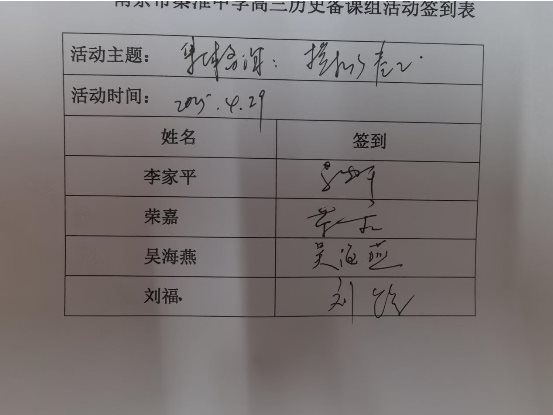 南京市秦淮中学高三历史备课组活动签到表
活动主题：
活动时间： 2025.4.29
姓名 签到
李家平
荣嘉 荣嘉
吴海燕 吴海燕
刘福. 刘福